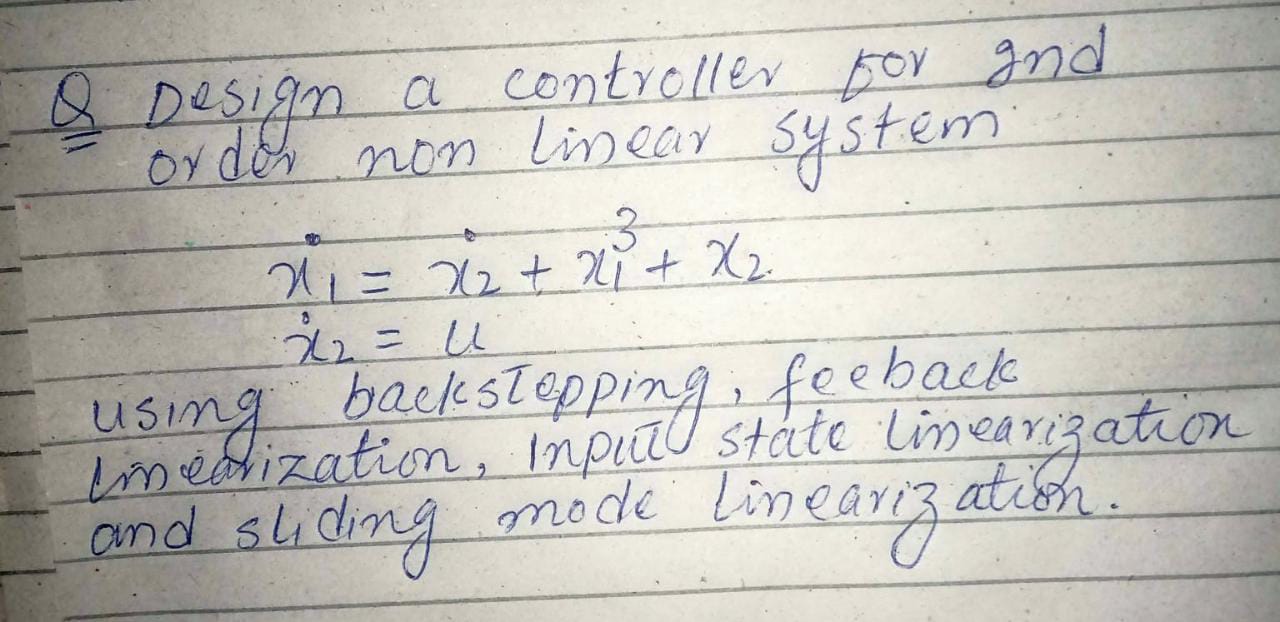 Q Design a controller for 2nd
order non linear system
ẋ₁ = ẋ₂ + x₁³ + x₂.
ẋ₂ = u
using backstepping, feeback
linearization, Input state linearization
and sliding mode linearization.